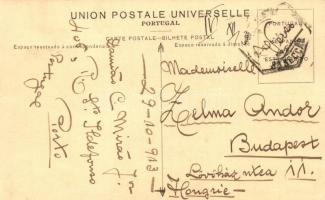 UNION POSTALE UNIVERSELLE
PORTUGAL
CARTE POSTALE - BILHETE POSTAL
Espaço reservado à correspondencia
Espaço reservado à
PORTUGAL
Mademoiselle
Zelma Andor
Budapest
Lovóház utca 11.
Hongrie
29-10-913
C. Mirão Jor
R. Sto Ildefonso
Porto
Portugal